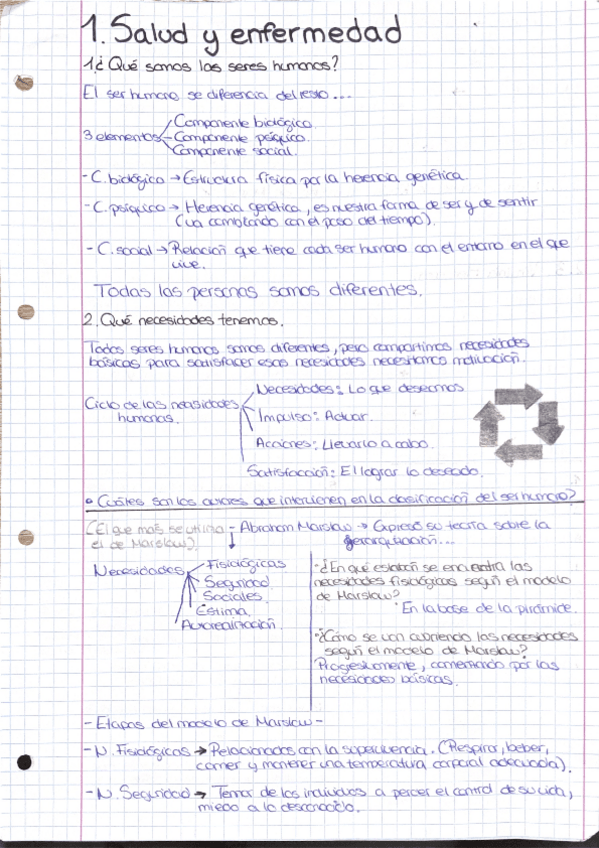 1. Salud y enfermedad
1¿Qué somos los seres humanos?
El ser humano se diferencia del resto...
3 elementos
Componente biológico.
Componente psíquico.
Componente social.
- C. biológico → Estructura física por la herencia genética.
- C. psíquico → Herencia genética, es nuestra forma de ser y de sentir
(va cambiando con el paso del tiempo).
- C. social → Relación que tiene cada ser humano con el entorno en el que
vive.
Todas las personas somos diferentes.
2. Qué necesidades tenemos.
Todos seres humanos somos diferentes, pero compartimos necesidades
básicas para satisfacer esas necesidades necesitamos motivación.
Ciclo de las necesidades
humanas.
Necesidades: Lo que deseamos
Impulso: Actuar.
Acciones: Llevarlo a cabo.
Satisfacción: El lograr lo deseado.
• Cuáles son los autores que intervienen en la clasificación del ser humano?
(El que más se utiliza
el de Marslow)
- Abraham Marslow → Expresó su teoría sobre la
jerarquización...
Necesidades
Fisiológicas
Seguridad
Sociales
Estima
Autorrealización.
- ¿En qué eslabón se encuentra las
necesidades fisiológicas según el modelo
de Marslow?
En la base de la pirámide.
- ¿Cómo se van cubriendo las necesidades
según el modelo de Marslow?
Progresivamente, comenzando por las
necesidades básicas.
- Etapas del modelo de Marslow -
- N. Fisiológicas → Relacionadas con la supervivencia. (Respirar, beber,
comer y mantener una temperatura corporal adecuada).
- N. Seguridad → Temor de los individuos a perder el control de su vida,
miedo a lo desconocido.